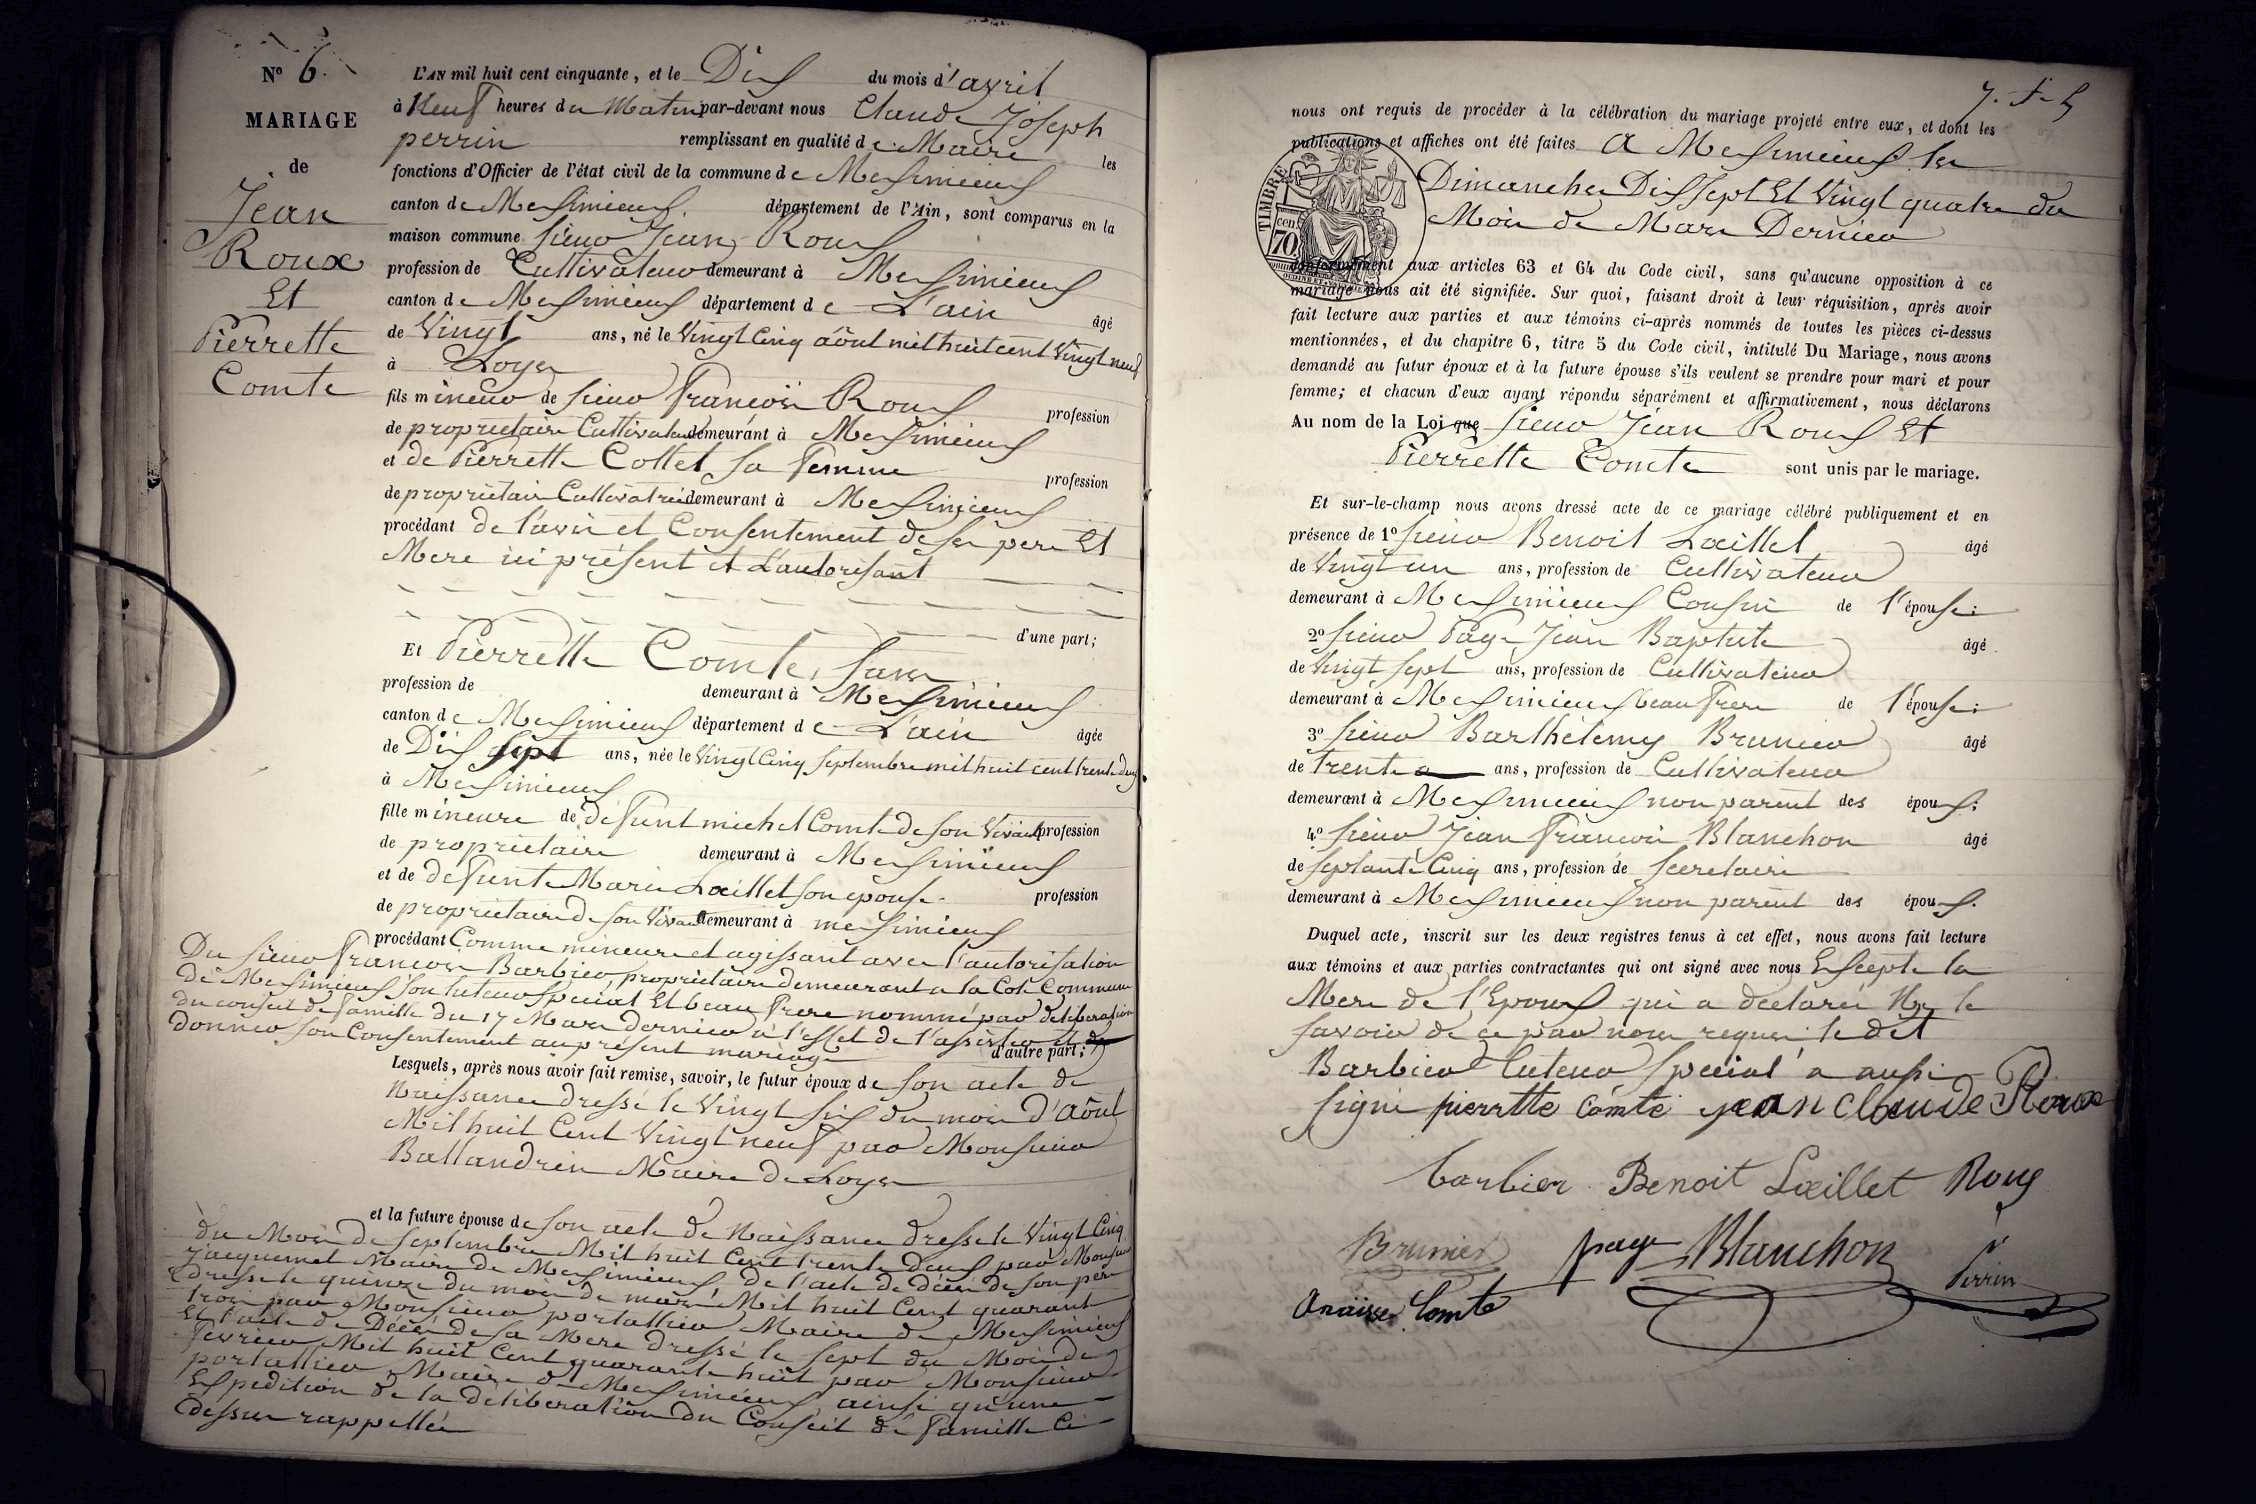 N° 6.
MARIAGE
de
Jean
Roux
Et
Pierrette
Comte
L'AN mil huit cent cinquante, et le Dix du mois d'avril
à Neuf heures du Matin par-devant nous Claude Joseph
perrin remplissant en qualité de Maire les
fonctions d'Officier de l'état civil de la commune de Meximieux
canton de Meximieux. département de l'Ain, sont comparus en la
maison commune sieur Jean Roux
profession de Cultivateur demeurant à Meximieux
canton de Meximieux département de L'ain âgé
de Vingt ans, né le Vingt Cinq aôut mil huit cent Vingt neuf
à Loyes
fils mineur de sieur François Roux profession
de proprietaire Cultivateur demeurant à Meximieux
et de Pierrette Collet sa femme profession
de proprietaire Cultivatrice demeurant à Meximieux
procédant de l'avis et Consentement de ses pere Et
Mere ici présent et L'autorisant
d'une part;
Et Pierrette Comte, sans
profession de demeurant à Meximieux
canton de Meximieux département de L'ain âgée
de Dix sept ans, née le Vingt Cinq septembre mil huit cent trente deux
à Meximieux
fille mineure de défunt michel Comte de son Vivant profession
de proprietaire demeurant à Meximieux
et de defunte Marie Lœillet son epouse. profession
de proprietaire de son Vivant demeurant à meximieux
procédant Comme mineure et agissant avec l'autorisation
Du sieur François Barbier, propriétaire demeurant a la Cote Commune
de Meximieux son tuteur spécial Et beau frere nommé par déliberation
du conseil de famille du 17 Mars dernier à l'effet de l'assister et de
donner son Consentement au présent mariage d'autre part;
Lesquels, après nous avoir fait remise, savoir, le futur époux de son acte de
Naissance dressé le Vingt six du mois d'aôut
Mil huit Cent Vingt neuf par Monsieur
Ballandrin Maire de Loyes
et la future épouse de son acte de Naissance dressé le Vingt Cinq
du Mois de septembre Mil huit Cent trente deux par Monsieur
Jacquemet Maire de Meximieux, de l'acte de décés de son père
dressé le quinze du mois de mars Mil huit Cent quarante
trois par Monsieur portallier Maire de Meximieux
Et l'acte de Décés de sa Mere dressé le sept du Mois de
fevrier Mil huit Cent quarante huit par Monsieur
portallier Maire de Meximieux ainsi qu'une
Expedition de la déliberation du Conseil de famille Ci
dessus rappellée
nous ont requis de procéder à la célébration du mariage projeté entre eux, et dont les
publications et affiches ont été faites A Meximieux les
Dimanches Dix sept Et Vingt quatre du
Mois de Mars Dernier
TIMBRE
70
cen.
conformément aux articles 63 et 64 du Code civil, sans qu'aucune opposition à ce
mariage nous ait été signifiée. Sur quoi, faisant droit à leur réquisition, après avoir
fait lecture aux parties et aux témoins ci-après nommés de toutes les pièces ci-dessus
mentionnées, et du chapitre 6, titre 5 du Code civil, intitulé Du Mariage, nous avons
demandé au futur époux et à la future épouse s'ils veulent se prendre pour mari et pour
femme; et chacun d'eux ayant répondu séparément et affirmativement, nous déclarons
Au nom de la Loi que sieur Jean Roux Et
Pierrette Comte sont unis par le mariage.
Et sur-le-champ nous avons dressé acte de ce mariage célébré publiquement et en
présence de 1° sieur Benoit Lœillet âgé
de Vingt un ans, profession de Cultivateur
demeurant à Meximieux Cousin de l'épouse;
2° sieur Page Jean Baptiste âgé
de Vingt sept ans, profession de Cultivateur
demeurant à Meximieux beau frere de l'épouse;
3° sieur Barthélemy Brunier âgé
de trente ans, profession de Cultivateur
demeurant à Meximieux non parent des époux;
4° sieur Jean François Blanchon âgé
de septante Cinq ans, profession de secretaire
demeurant à Meximieux non parent des époux.
Duquel acte, inscrit sur les deux registres tenus à cet effet, nous avons fait lecture
aux témoins et aux parties contractantes qui ont signé avec nous Excepté la
Mere de l'Epoux qui a déclaré Ne le
savoir de ce par nous requis le dit
Barbier tuteur spécial a aussi
signé pierrette Comte jean claude Roux
barbier Benoit Lœillet Roux
Brunier page Blanchon Perrin
Comte